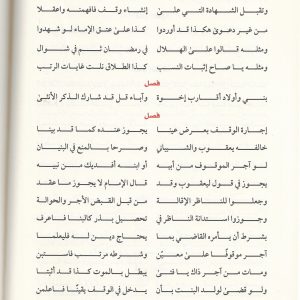 وتقبل الشهادة التي على إنشاء وقف فافهمنه واعقلا
من غير دعوى هكذا قد أوردوا كذا على عتق الإماء لو شهدوا
ومثله قالوا على الهلال في رمضان ثم في شوال
ومثله يا صاح إثبات النسب كذا الطلاق نلت غايات الرتب
فصل
بني وأولاد أقارب إخوة وآباء قل قد شارك الذكر الأنثى
فصل
إجارة الوقف بعرض عينا يجوز عنده كما قد بينا
خالفه يعقوب والشيباني وصرحا بالمنع في البنيان
لو آجر الموقف من أبيه أو ابنه أفديك من نبيه
يجوز في قول ليعقوب وقد قال الإمام لا يجوز ما عقد
وجعلوا للناظر الإقالة من قبل القبض الأجر والحوالة
وجوزوا استدانة الناظر في تحصيل بذر كالبنا فاعرف
بشرط أن يأمره القاضي بما يحتاج دين له فليعلما
آجر موقوفًا على معين وشرطه مرتب فاستبن
ومات من آجر ذاك يا فتى يبطل بالموت كذا قد أثبتا
ولو قضى لولد البنت بأن يدخل في الوقف يقينًا فاعلمن